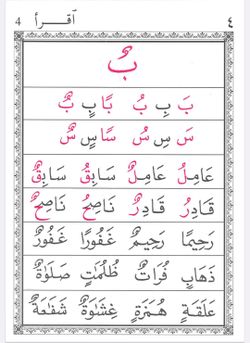 ٤ اقرأ 4
بٌ
بَ بِ بُ بًا بٍ بٌ
سَ سِ سُ سًا سٍ سٌ
عَامِلُ عَامِلٌ سَابِقُ سَابِقٌ
قَادِرُ قَادِرٌ نَاصِحُ نَاصِحٌ
رَحِيمًا رَحِيمٌ غَفُورًا غَفُورٌ
ذَهَابٍ فُرَاتٌ ظُلُمَٰتٍ صَلَوٰةٌ
عَلَقَةٍ هُمَزَةٍ غِشَٰوَةٌ شَفَٰعَةٌ